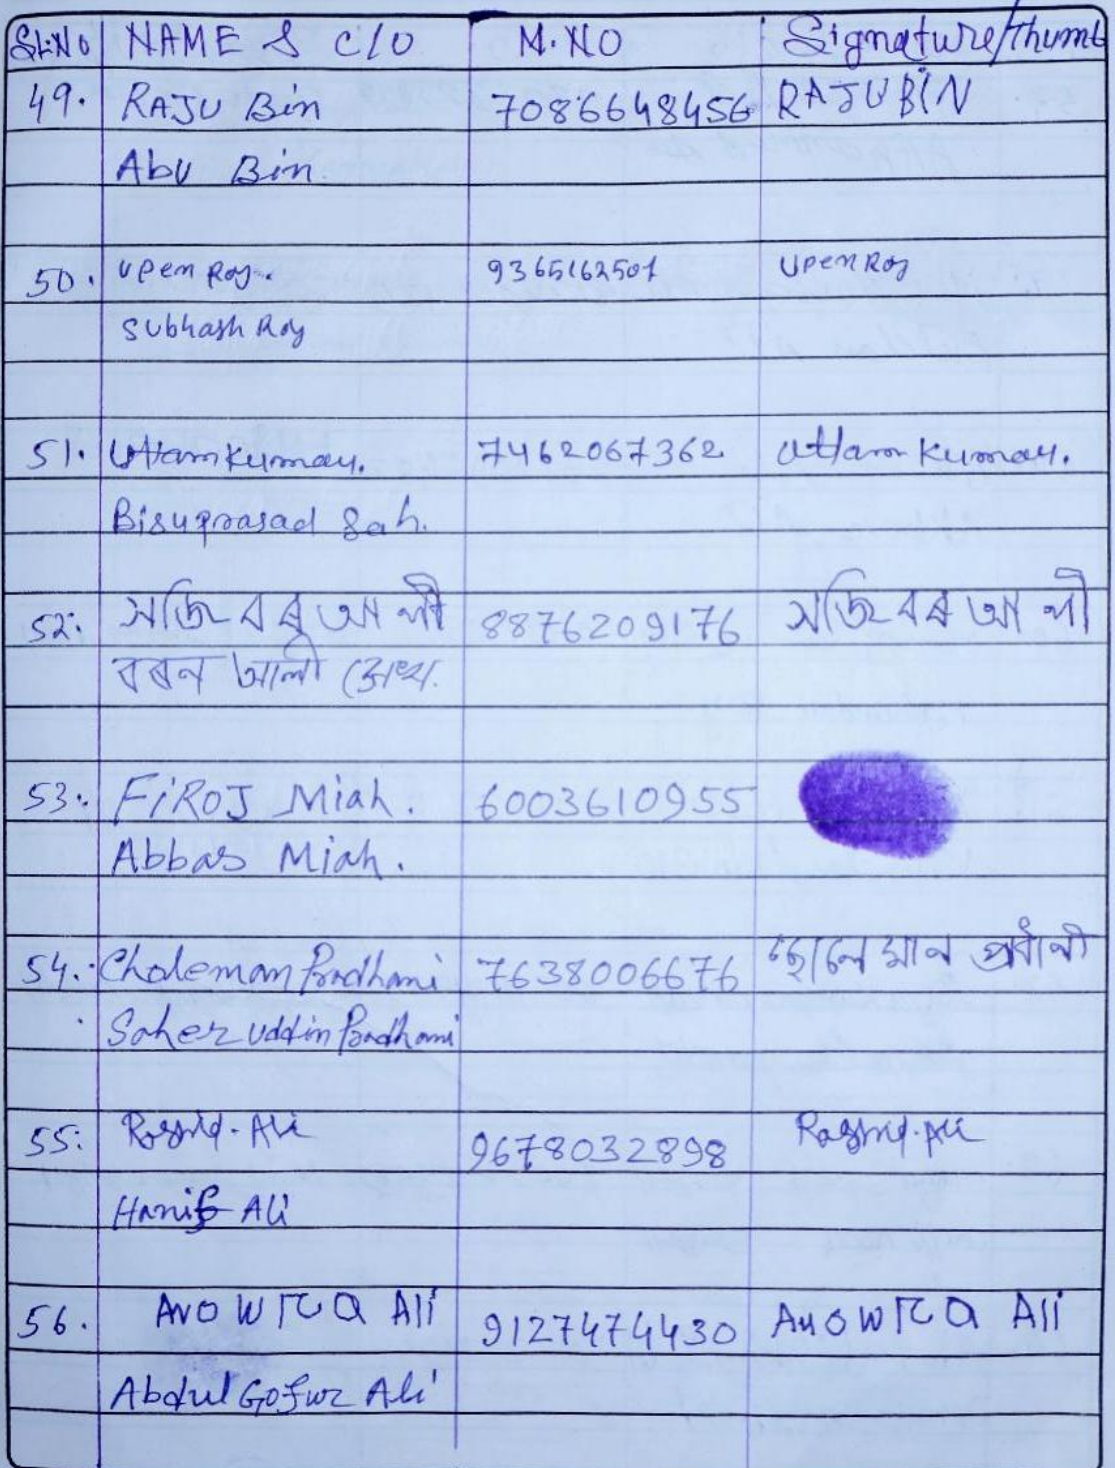 SL.NO NAME & C/O M.NO Signature/Thumb
49. RAJU Bin 7086648456 RAJUBIN
Abu Bin.
50. Upen Roy. 9365162501 Upen Roy
Subhash Roy
51. Uttam Kumar. 7462067362 Uttam Kumar.
Bisuprasad Sah.
52. সজিবৰ আলী 8876209176 সজিবৰ আলী
বৰন আলী সেখ.
53. FiROJ Miah. 6003610955
Abbas Miah.
54. Choleman Pradhani 7638006676 ছোলেমান প্ৰধানী
Saher uddin Pradhani
55. Rashid. Ali 9678032898 Rashid. Ali
Hanif Ali
56. Ali 9127474430 Ali
Abdul Gofur Ali